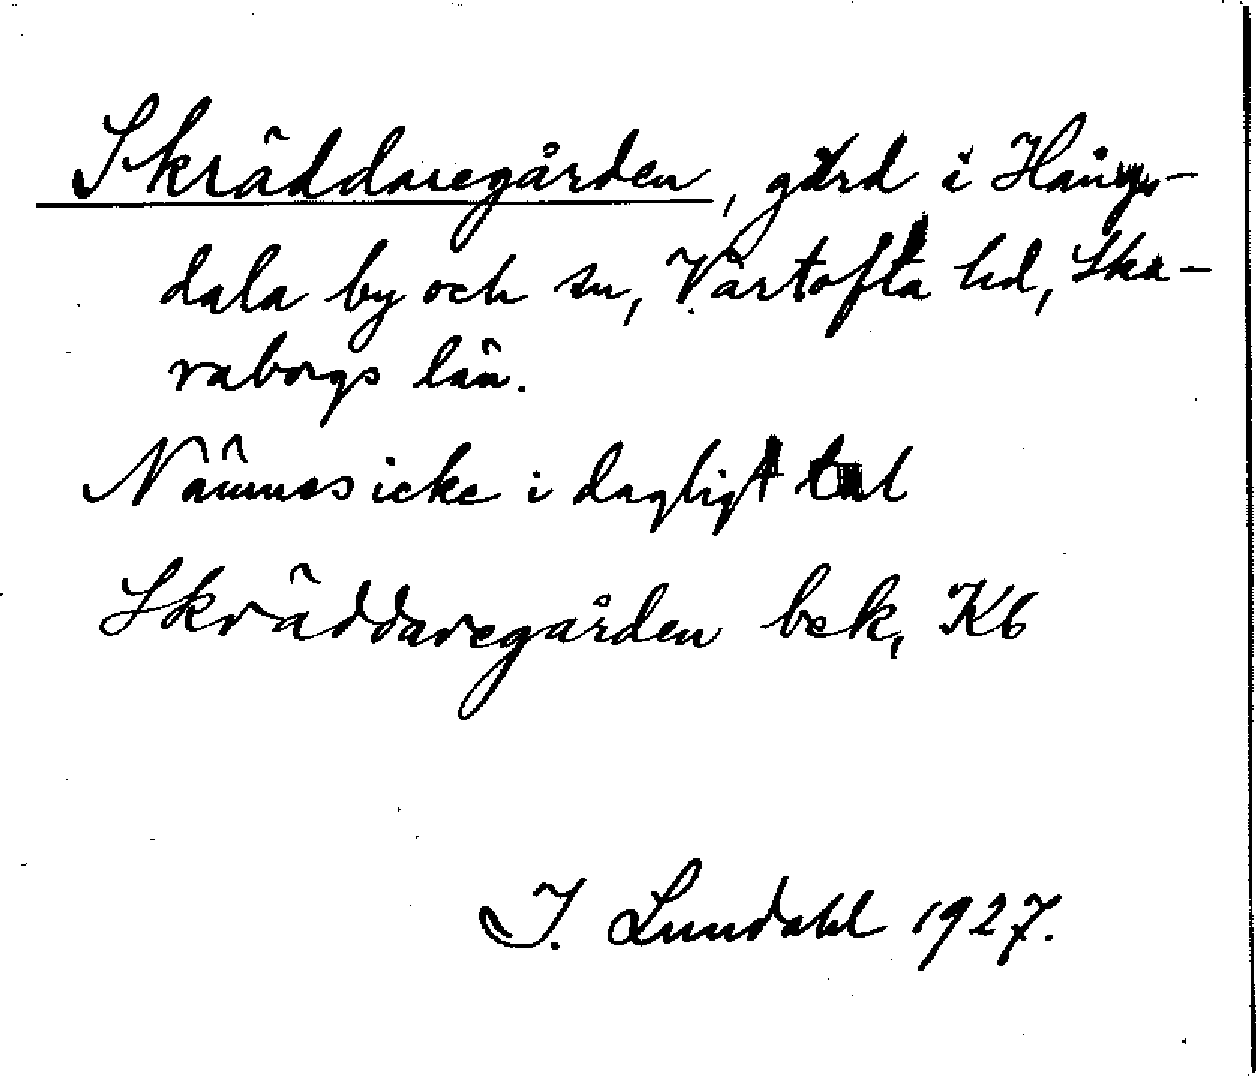 Skräddaregården, gård i Hångs-
dala by och sn, Vartofta hd, Ska-
raborgs län.
Nämnes icke i dagligt tal
Skräddaregården bek, K6
I. Lundahl 1927.